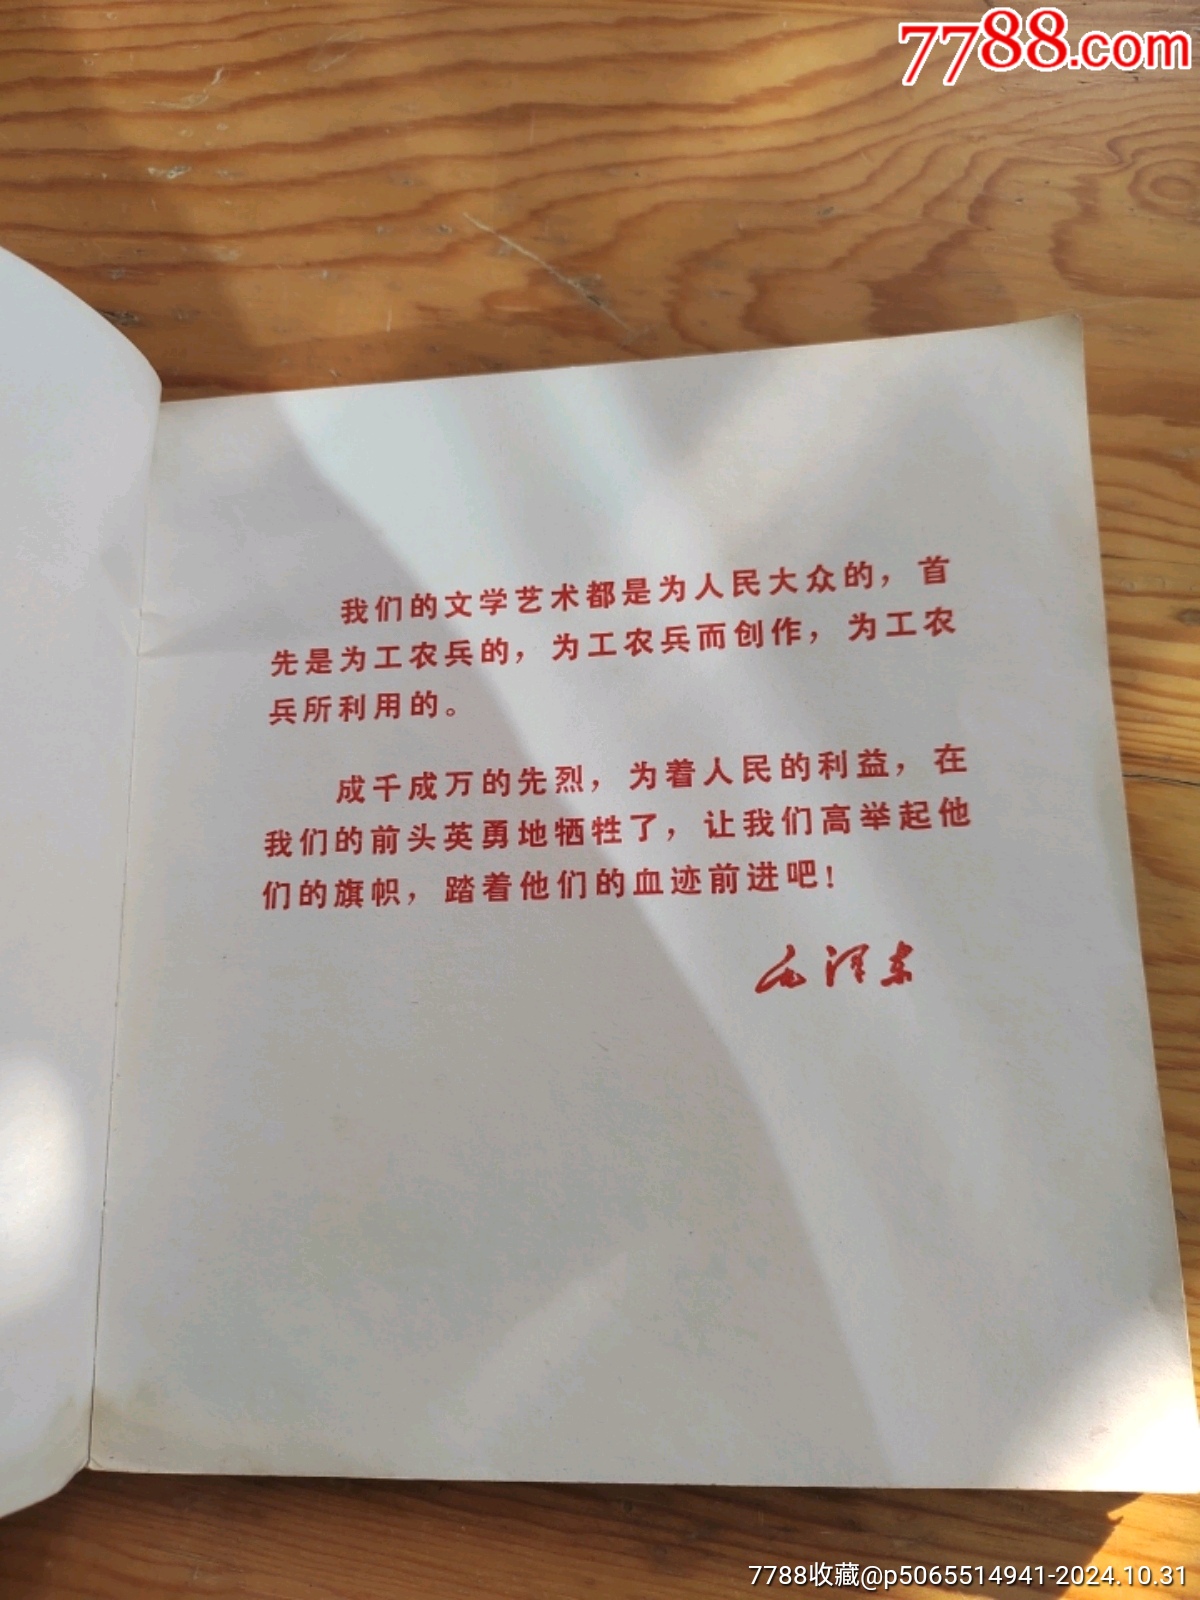 7788.com
我们的文学艺术都是为人民大众的，首
先是为工农兵的，为工农兵而创作，为工农
兵所利用的。
成千成万的先烈，为着人民的利益，在
我们的前头英勇地牺牲了，让我们高举起他
们的旗帜，踏着他们的血迹前进吧！
毛泽东
7788收藏@p5065514941-2024.10.31